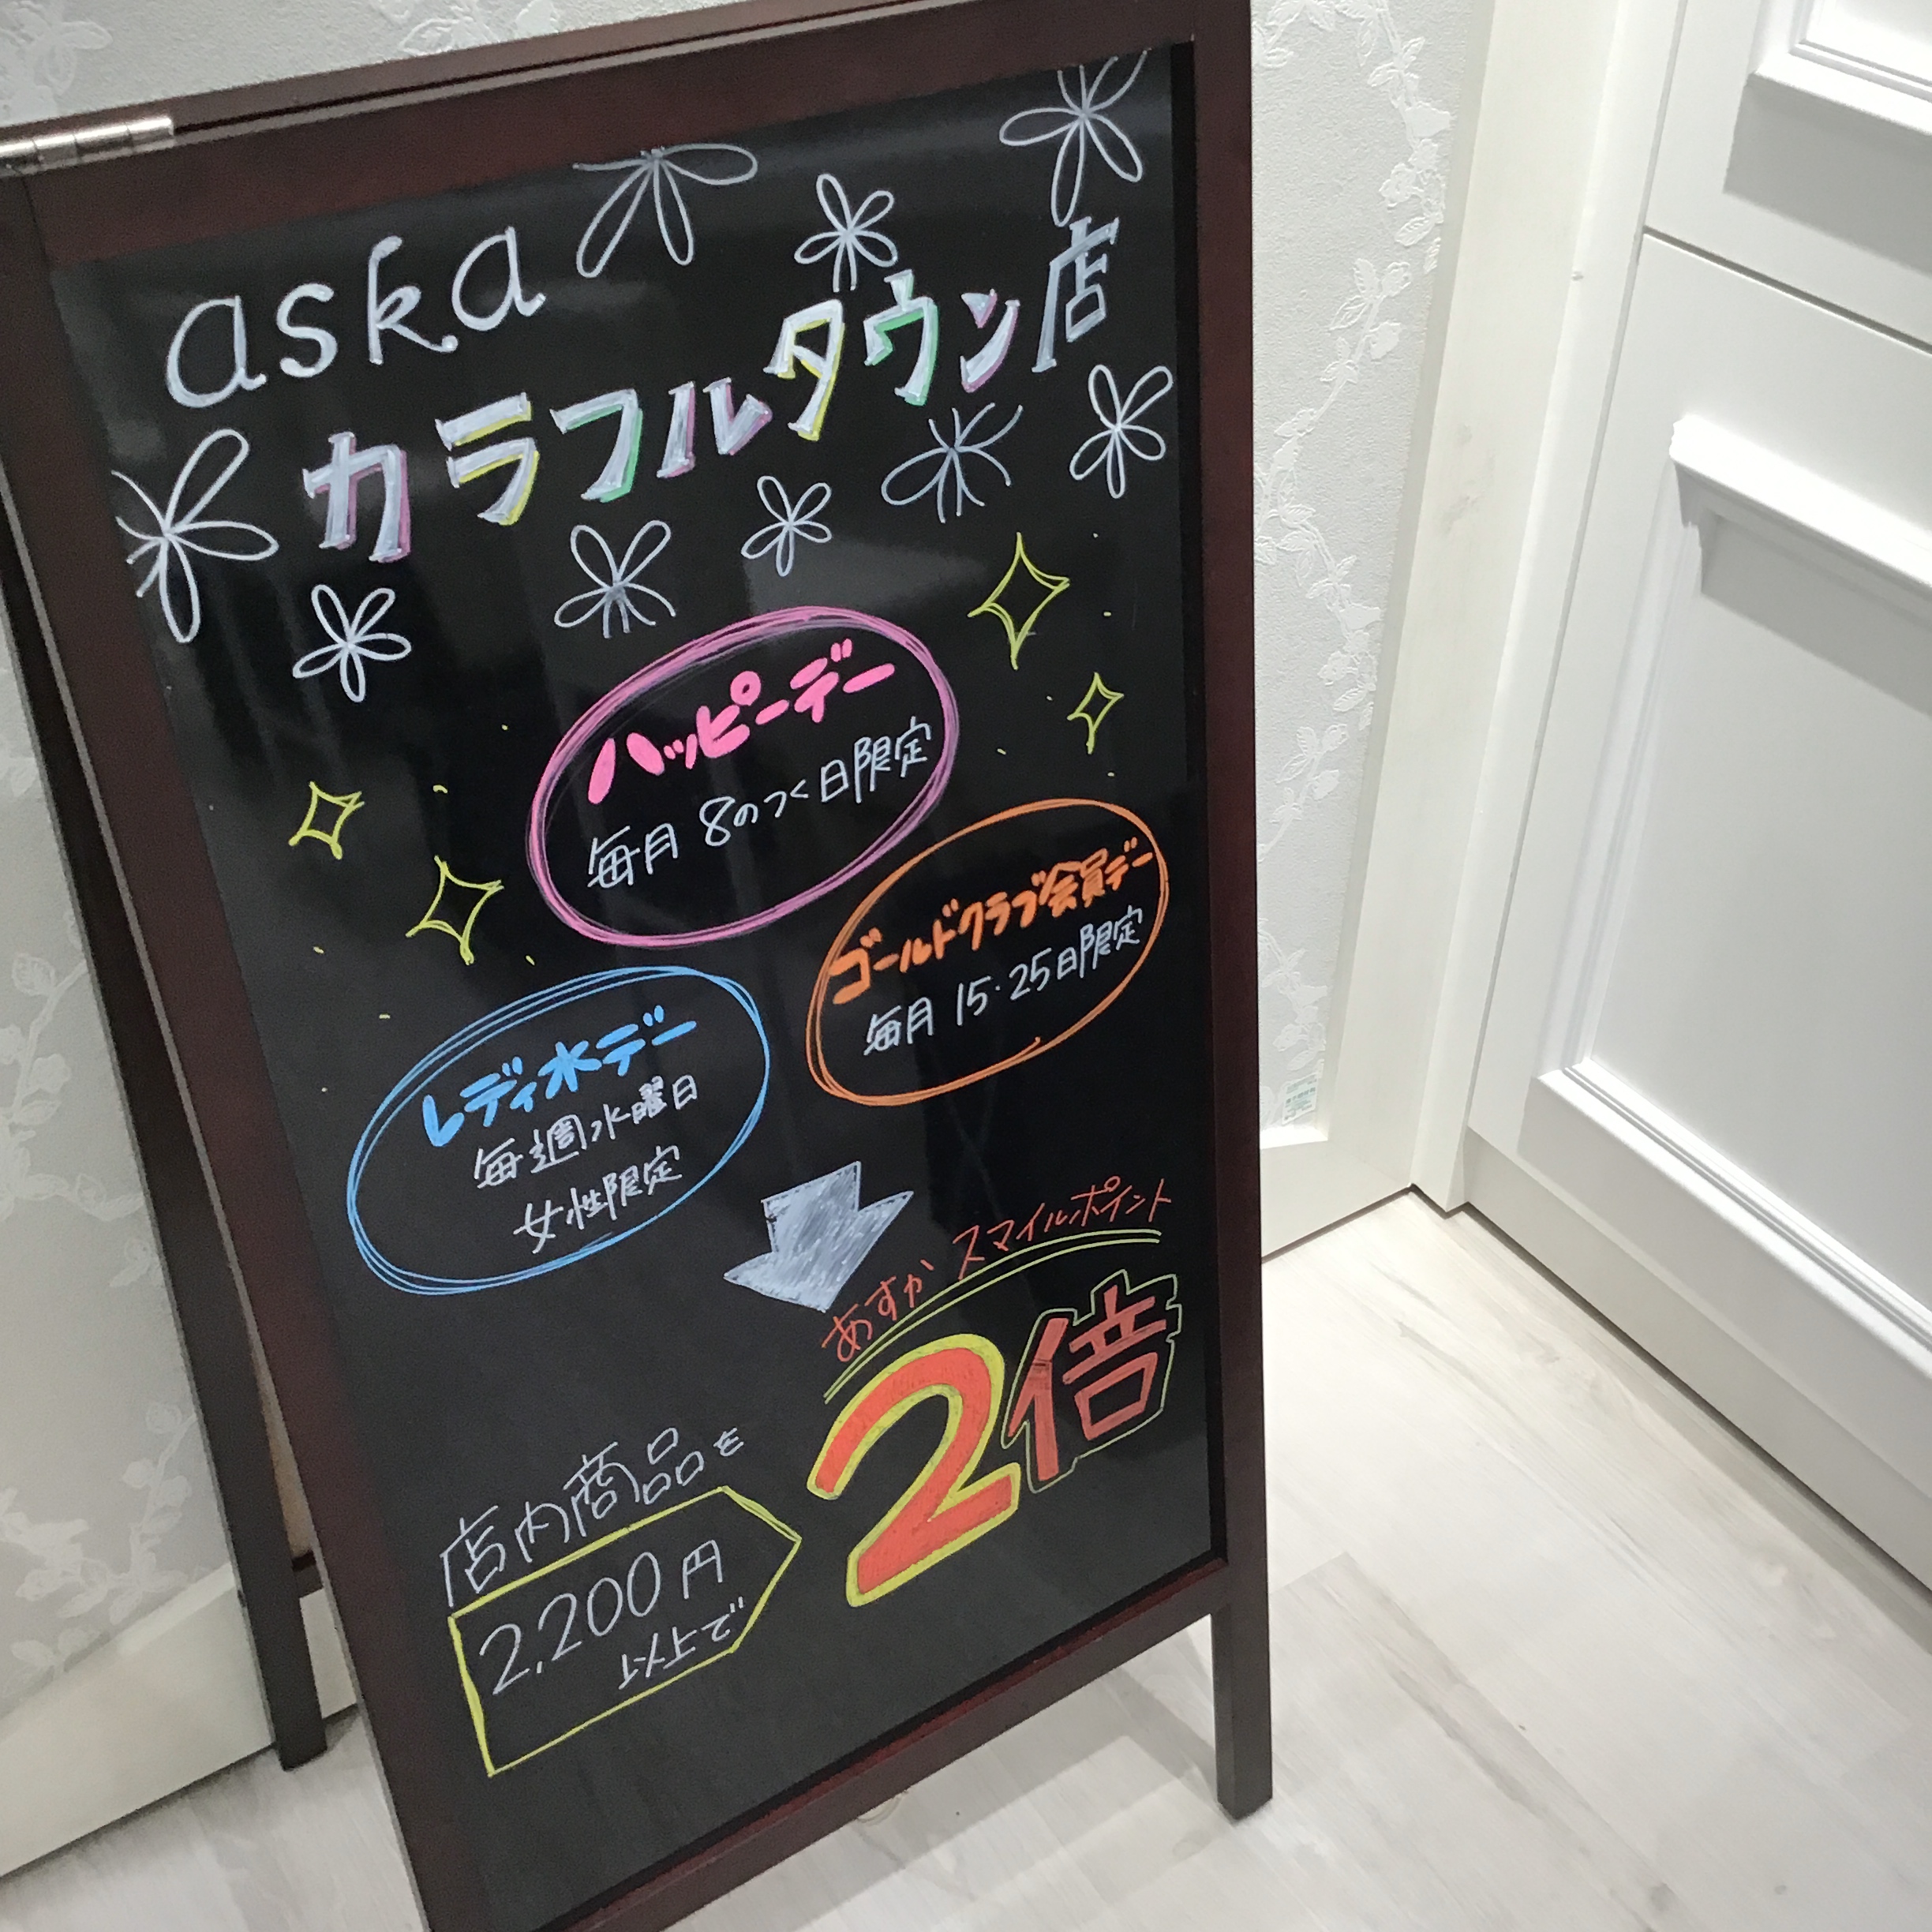 aska
カラフルタウン店
ハッピーデー
毎月 8のつく日限定
ゴールドクラブ会員デー
毎月 15・25日限定
レディ水デー
毎週水曜日
女性限定
あすか スマイルポイント
2倍
店内商品を
2,200円
以上で